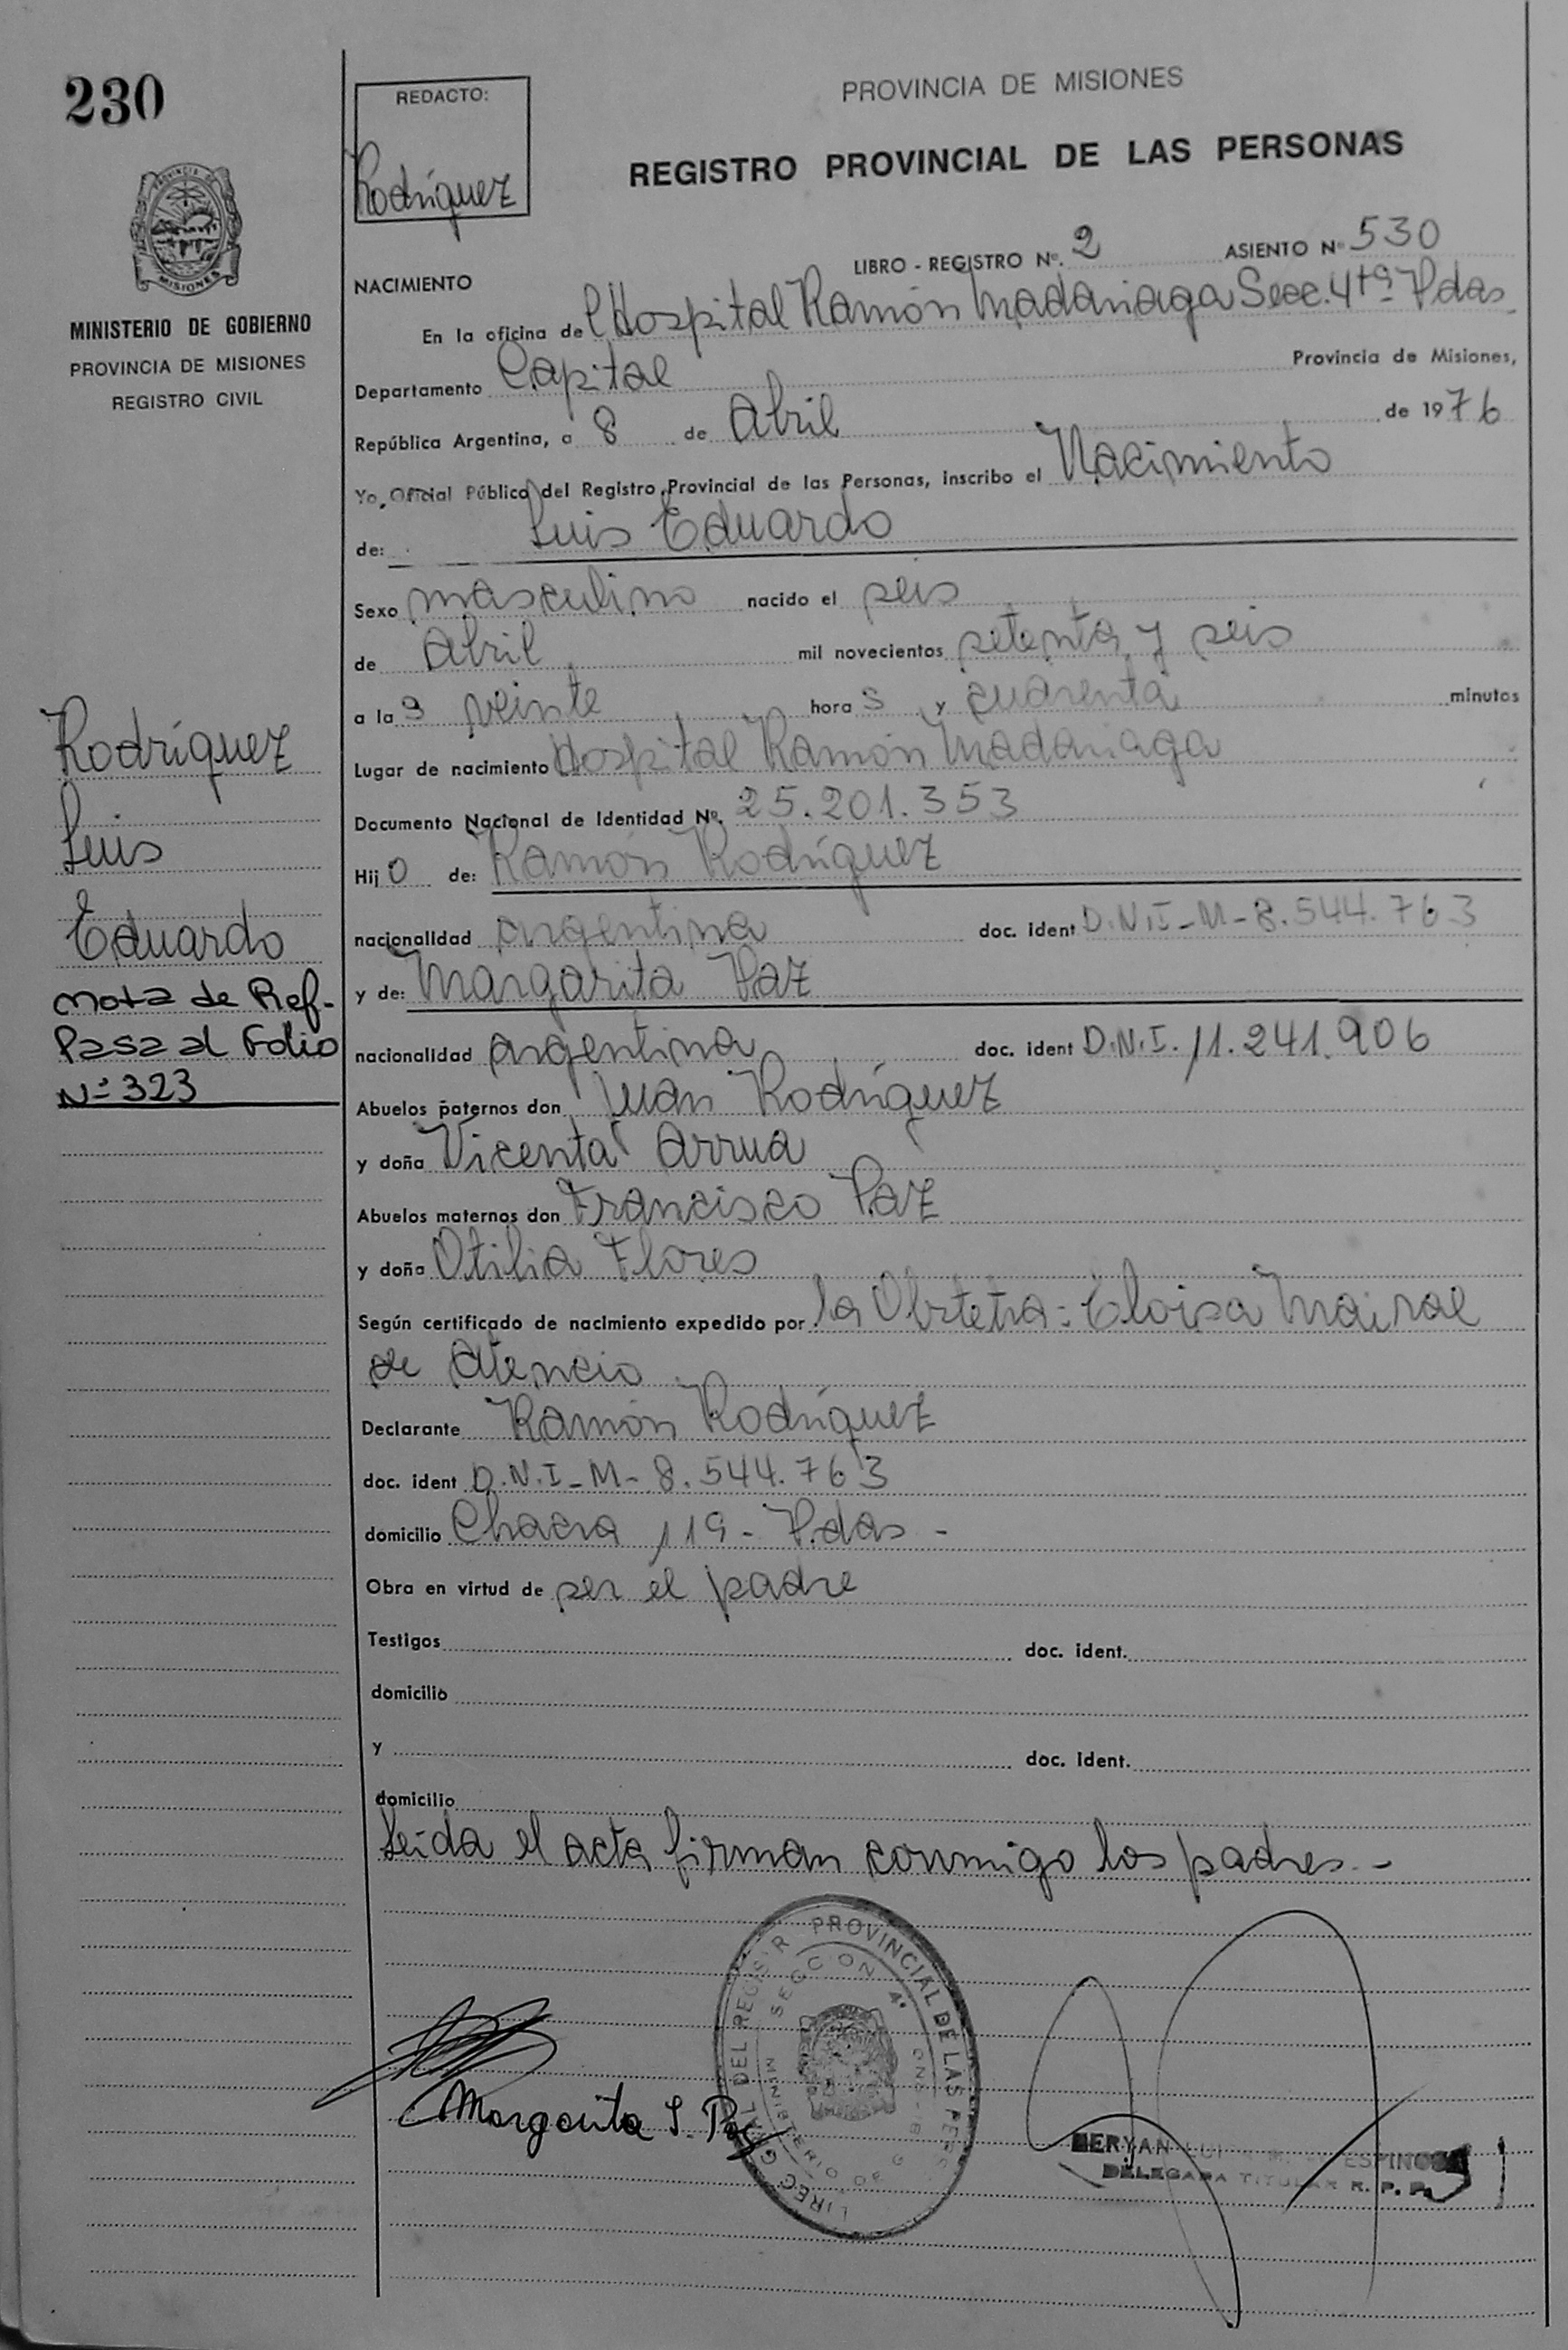 230
REDACTO:
Rodríguez
PROVINCIA DE MISIONES
REGISTRO PROVINCIAL DE LAS PERSONAS
MISIONES
MINISTERIO DE GOBIERNO
PROVINCIA DE MISIONES
REGISTRO CIVIL
LIBRO - REGISTRO Nº. 2 ASIENTO Nº 530
NACIMIENTO
En la oficina de Hospital Ramón Madariaga Secc. 4ta P.das
Departamento Capital Provincia de Misiones,
República Argentina, a 8 de Abril de 1976
Yo, Oficial Público del Registro Provincial de las Personas, inscribo el Nacimiento
de: Luis Eduardo
Sexo masculino nacido el seis
de Abril mil novecientos setenta y seis
a las veinte horas y cuarenta minutos
Lugar de nacimiento Hospital Ramón Madariaga
Documento Nacional de Identidad Nº. 25.201.353
Hijo de: Ramón Rodríguez
nacionalidad argentina doc. ident D.N.I-M-8.544.763
y de: Margarita Paz
nacionalidad argentina doc. ident D.N.I. 11.241.906
Abuelos paternos don Juan Rodríguez
y doña Vicenta Arrua
Abuelos maternos don Francisco Paz
y doña Otilia Flores
Según certificado de nacimiento expedido por la Obstetra: Eloisa Mairal
de Atencio
Declarante Ramón Rodríguez
doc. ident D.N.I-M-8.544.763
domicilio Chacra 119 - P.das -
Obra en virtud de ser el padre
Testigos doc. ident.
domicilio
y doc. ident.
domicilio
Leida el acta firman conmigo los padres.-
Rodríguez
Luis
Eduardo
Nota de Ref-
Pasa al Folio
Nº 323
Margarita S. Paz
PROVINCIAL DE LAS
SECCION 4ª
MINISTERIO DE G
MERYAN ESPINOSA
DELEGADA TITULAR R. P. P.